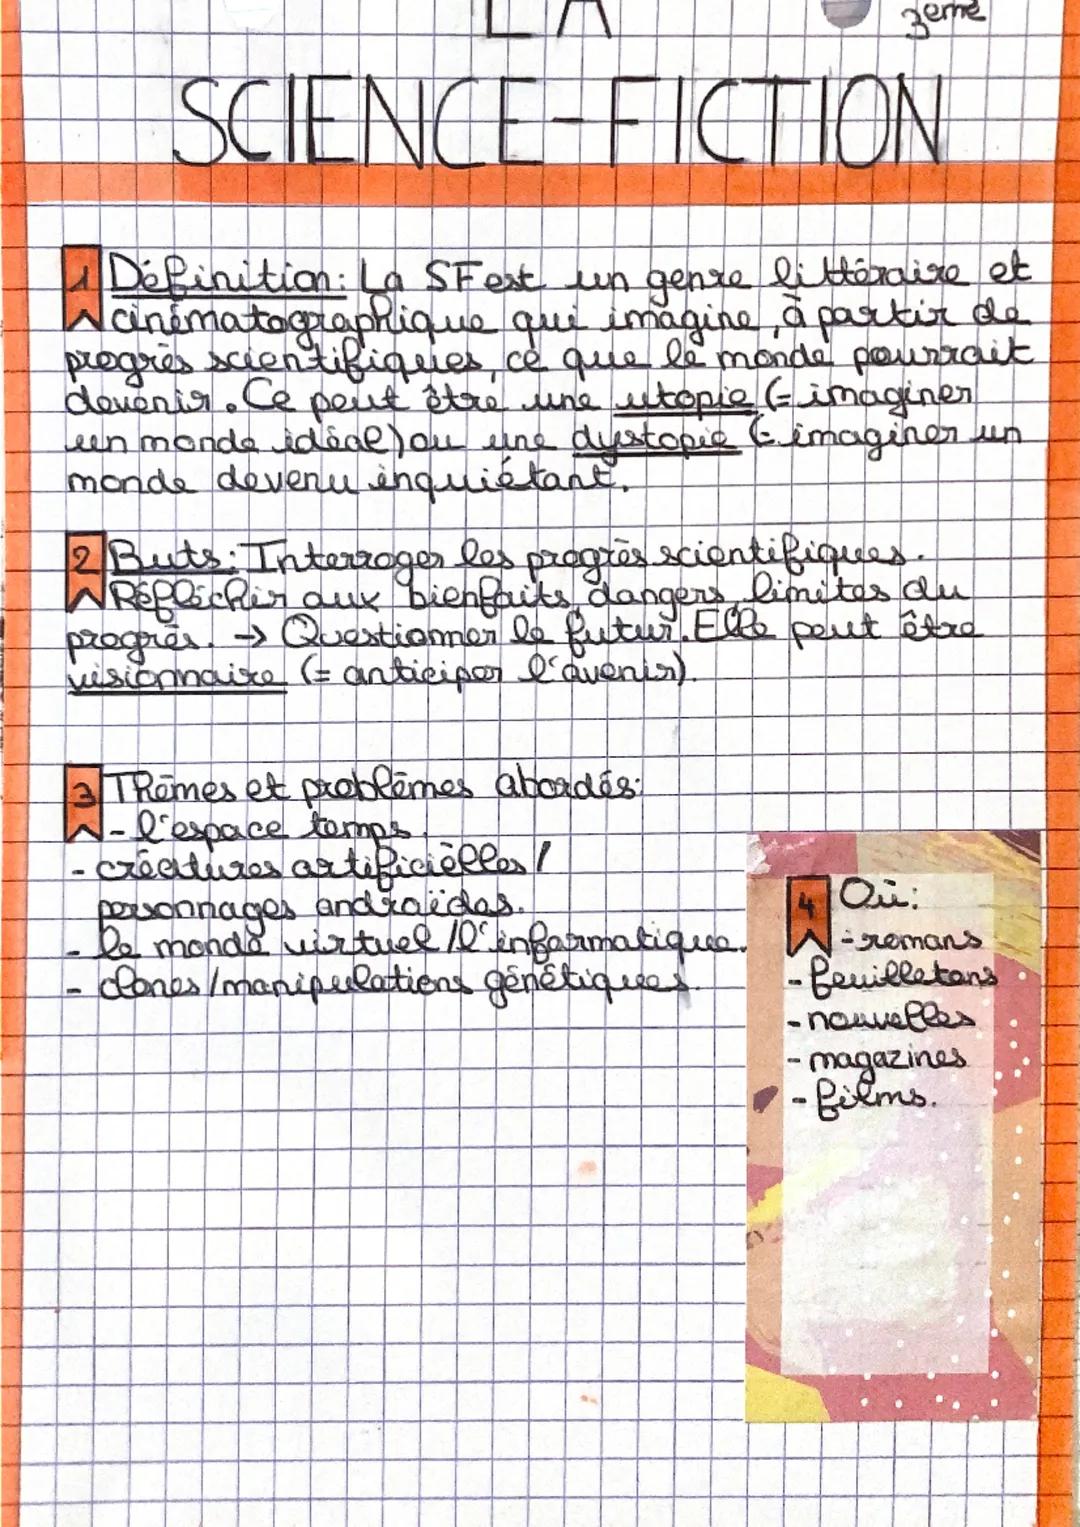 LA
3eme
SCIENCE-FICTION
1 Définition: La SF est un genre littéraire et
cinématographique qui imagine, à partir de
progrès scientifiques, ce que le monde pourrait
devenir. Ce peut être une utopie (= imaginer
un monde idéal) ou une dystopie (= imaginer un
monde devenu inquiétant.
2 Buts: Interroger les progrès scientifiques.
Réfléchir aux bienfaits, dangers, limites du
progrès. → Questionner le futur. Elle peut être
visionnaire (= anticiper l'avenir).
3 Thèmes et problèmes abordés:
- l'espace temps.
- créatures artificièlles /
personnages andraïdes.
- le monde virtuel / l'informatique.
- clones / manipulations génétiques.
4 Où:
- romans
- feuilletons
- nouvelles
- magazines
- films.